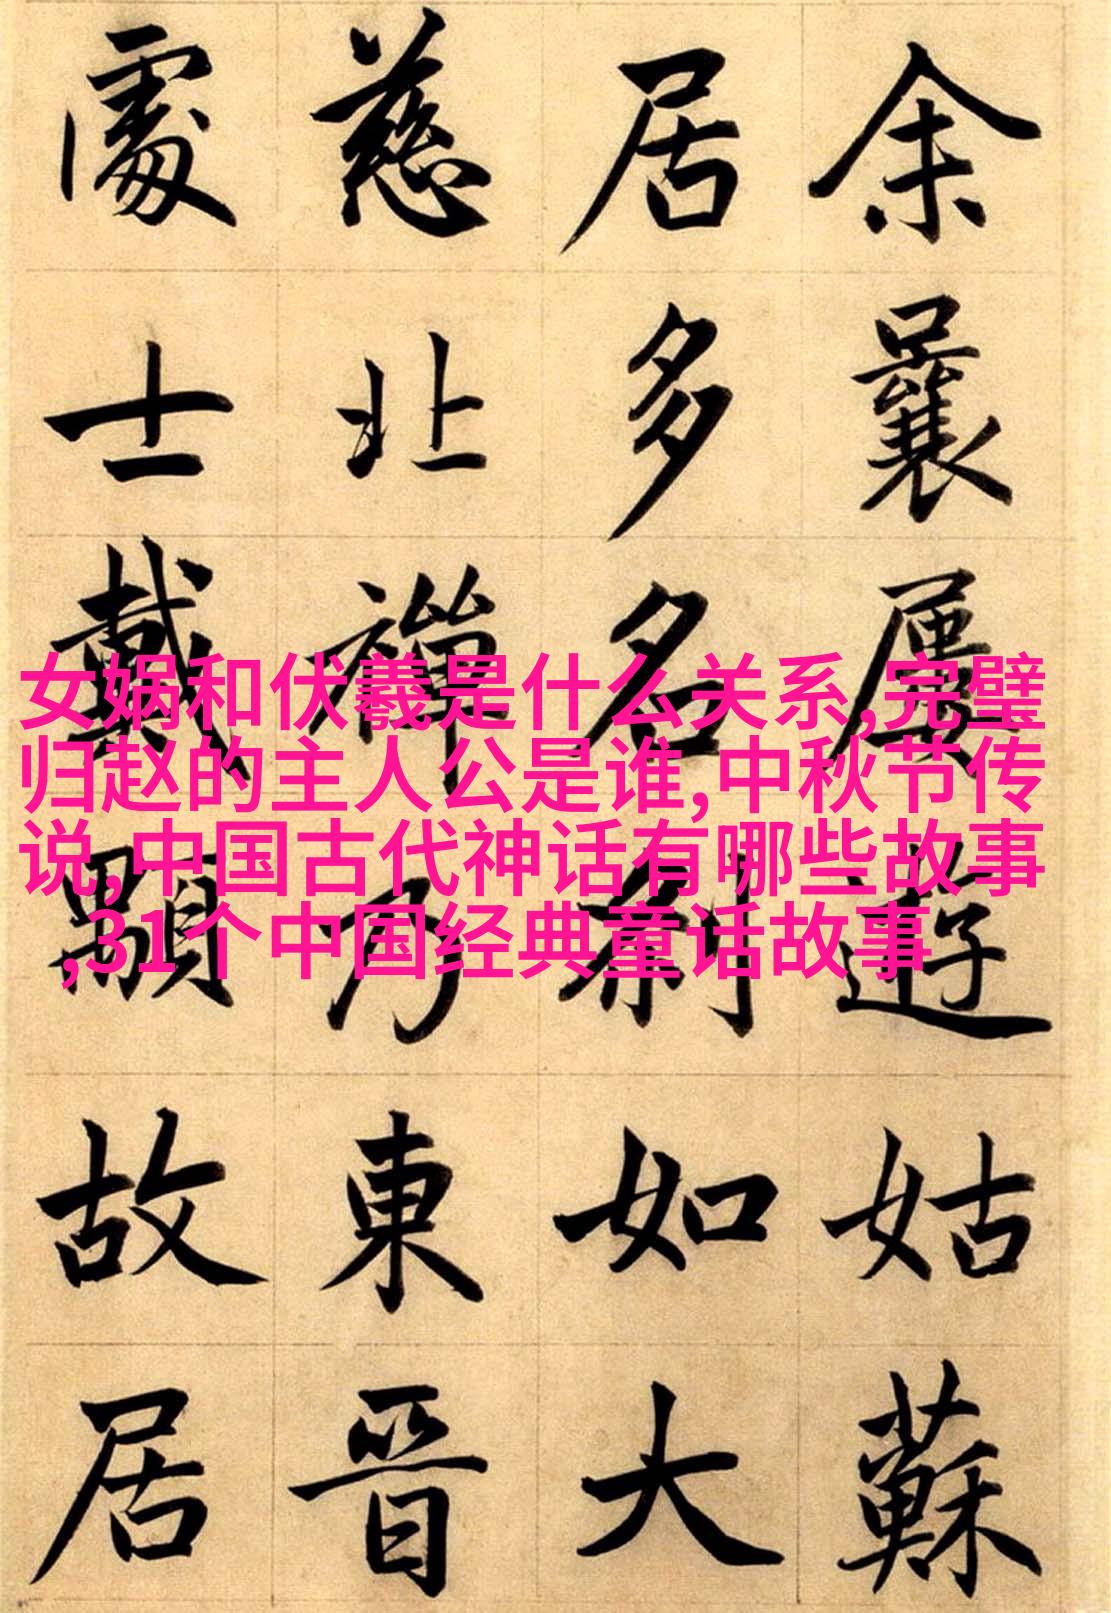 余曩屢遊姑蘇
居多名刹如大
慈北禪乃東晉
處士戴顒故居
女娲和伏羲是什么关系,完璧
归赵的主人公是谁,中秋节传
说,中国古代神话有哪些故事
,31个中国经典童话故事